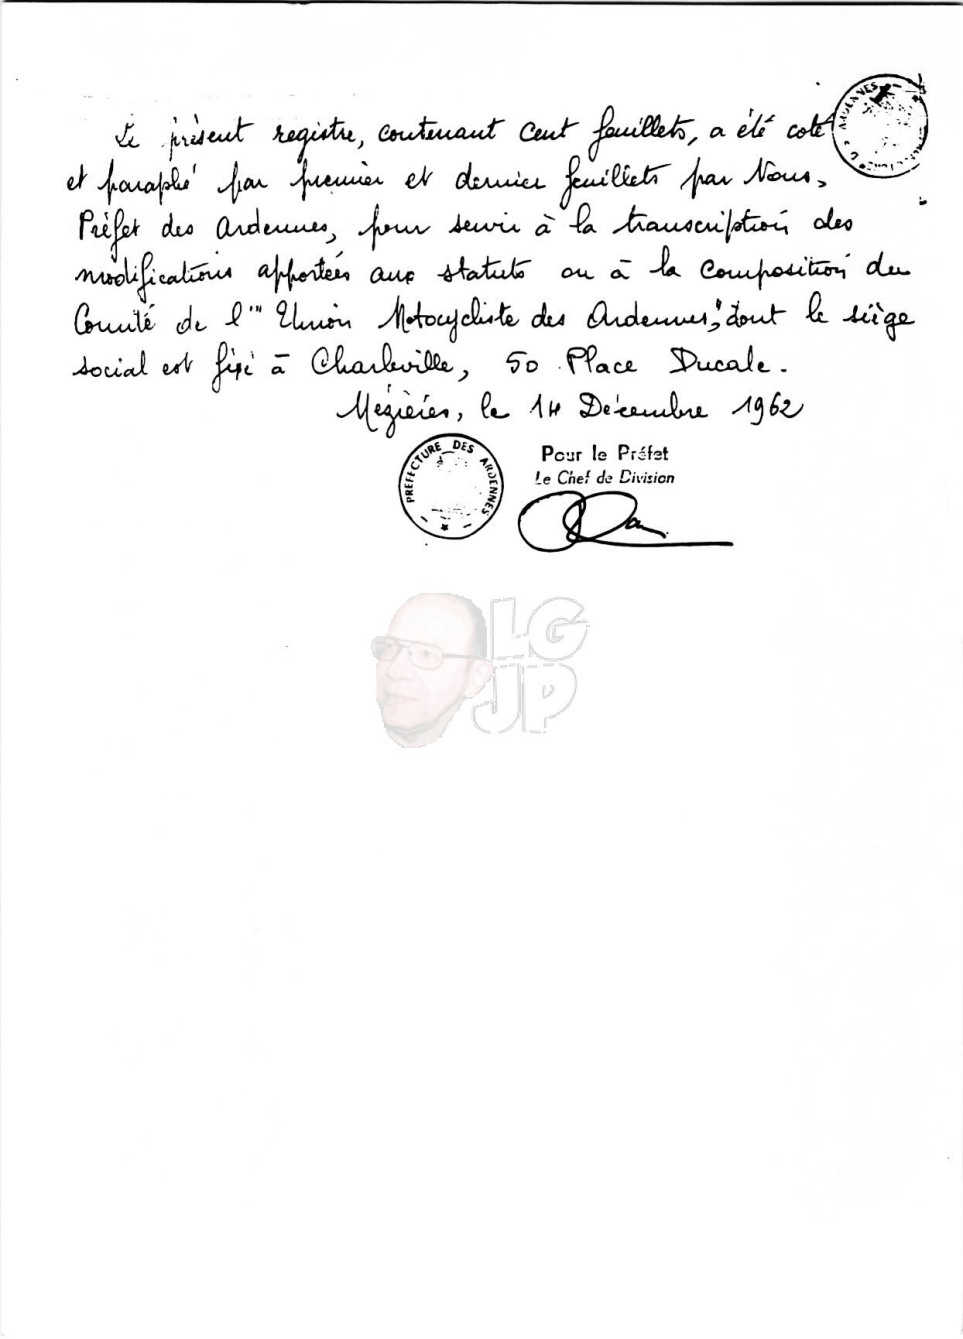 Le présent registre, contenant cent feuillets, a été coté
et paraphé par premier et dernier feuillets par Nous,
Préfet des Ardennes, pour servir à la transcription des
modifications apportées aux statuts ou à la composition du
Comité de l'" Union Motocycliste des Ardennes", dont le siège
social est fixé à Charleville, 50 Place Ducale.
Mézières, le 14 Décembre 1962
PREFECTURE DES ARDENNES
Pour le Préfet
Le Chef de Division
LG
JP